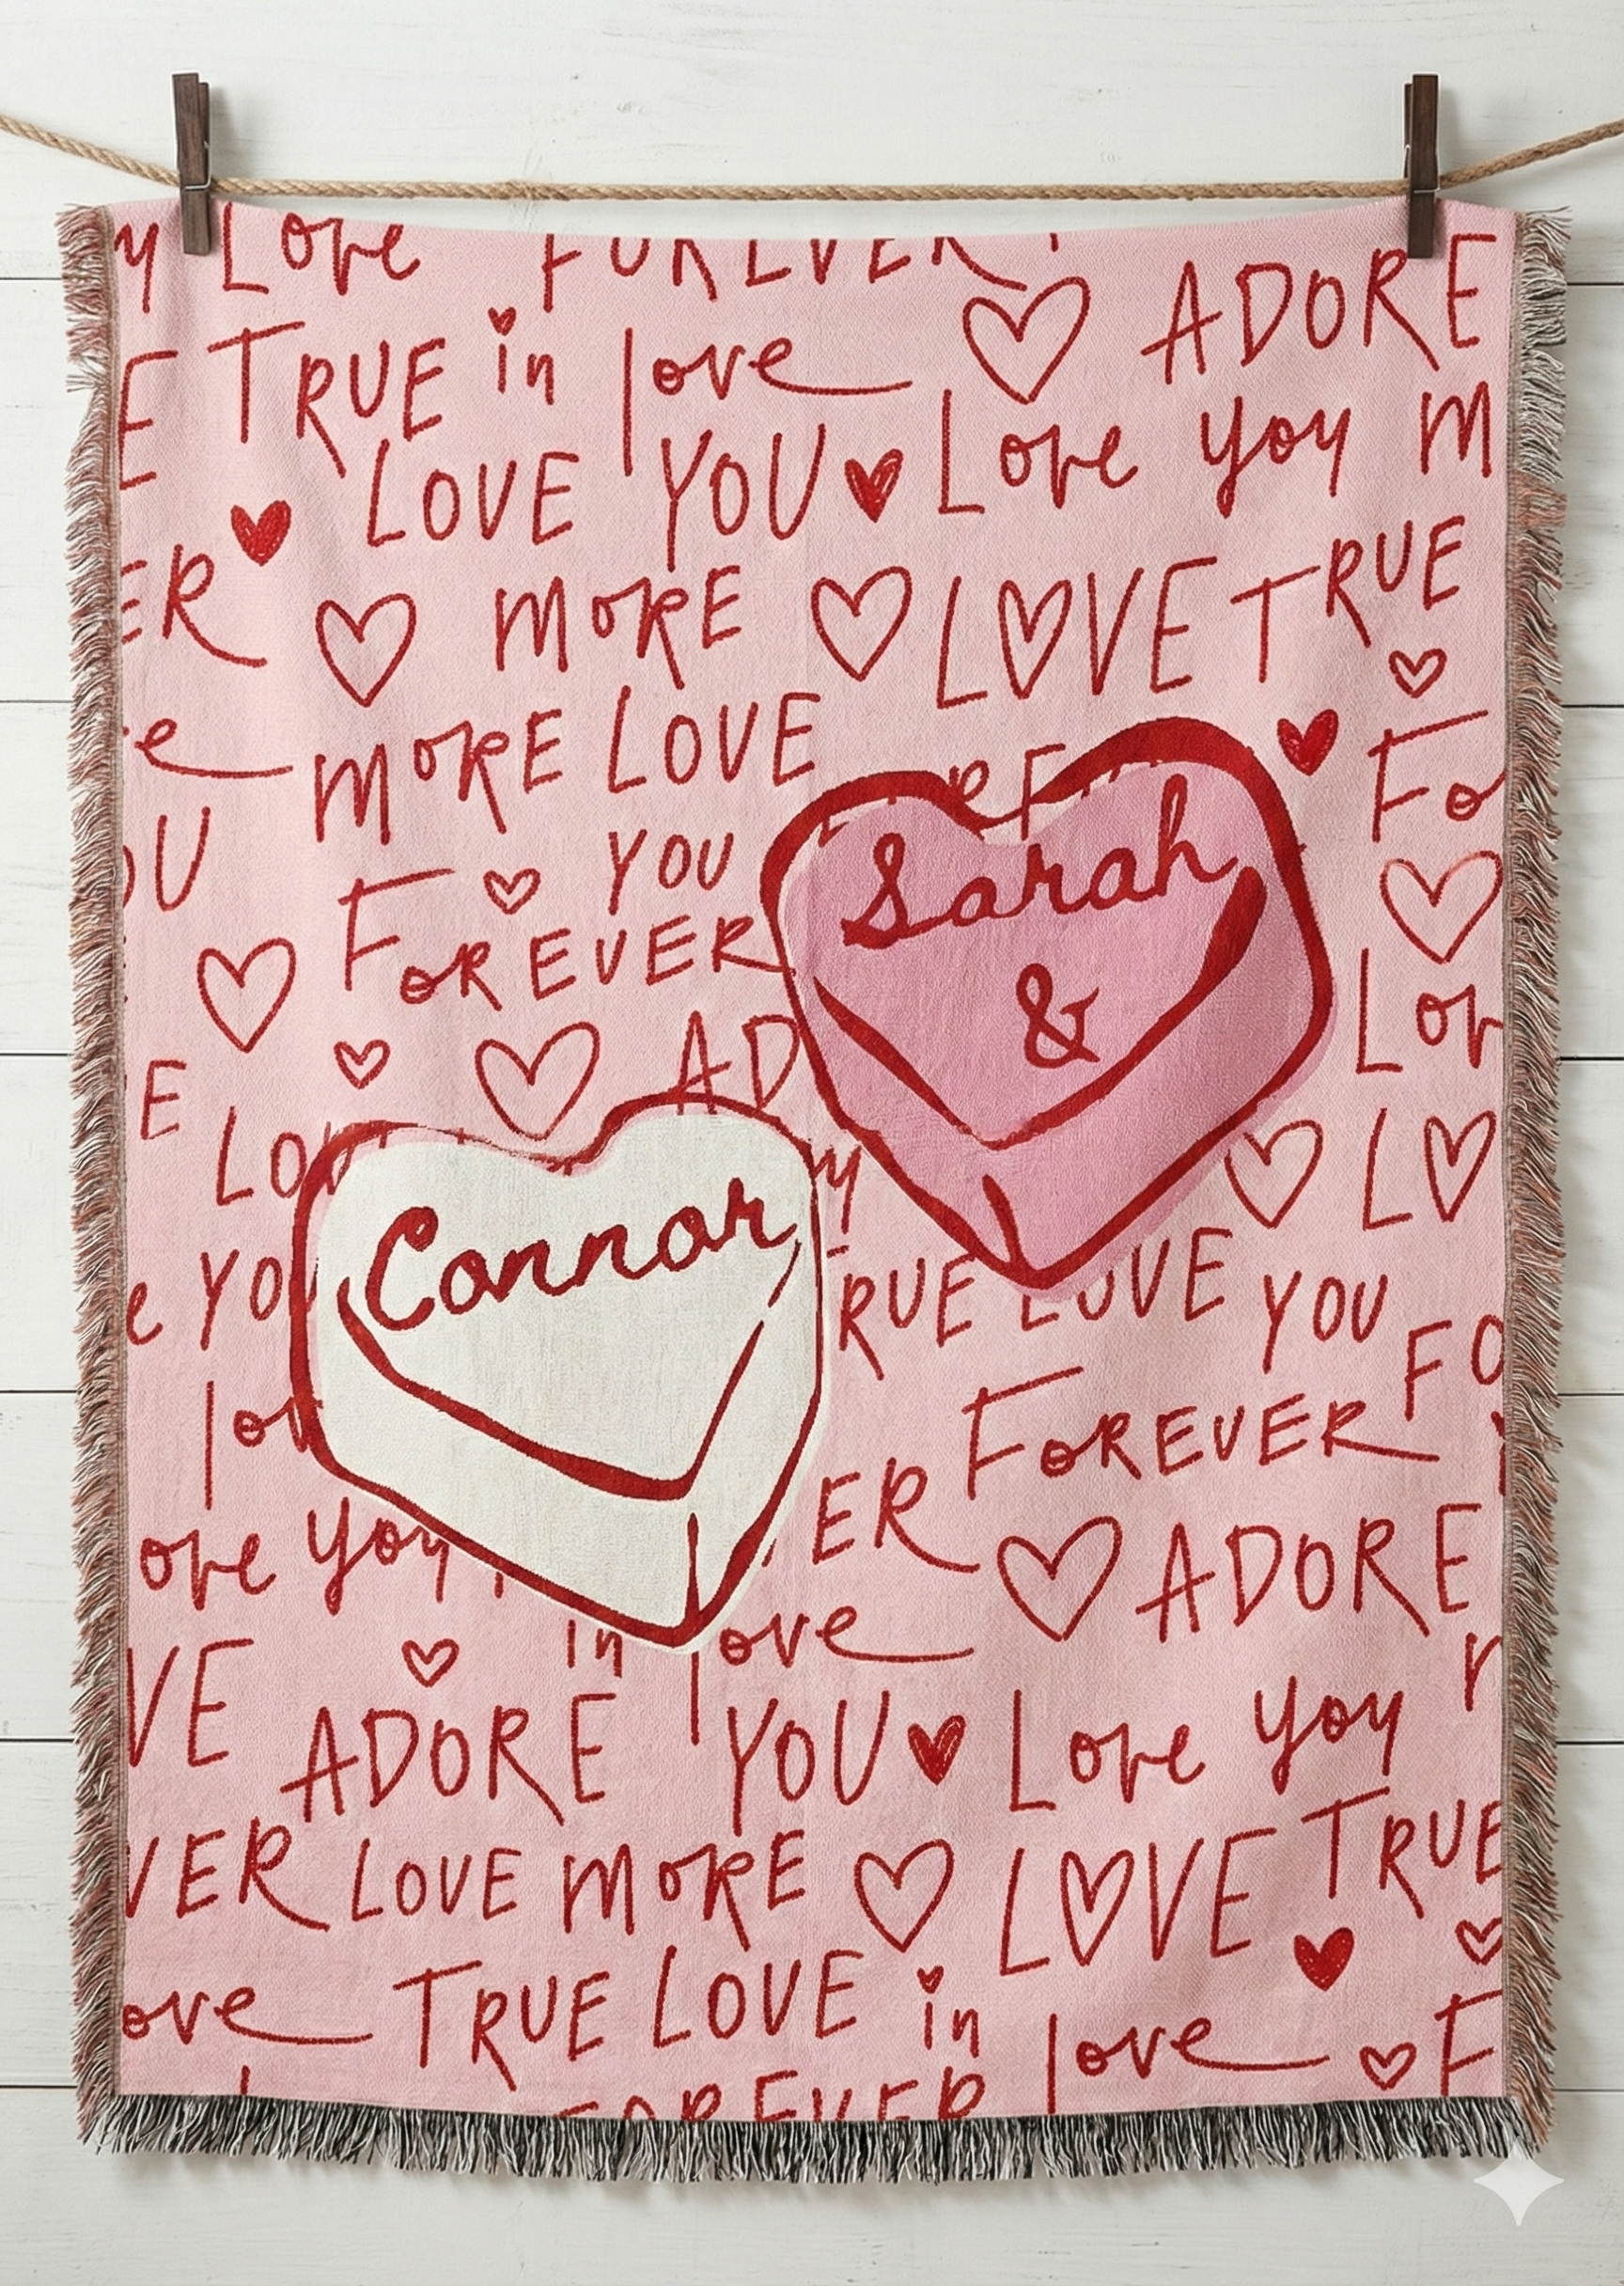 y Love FOREVER
ADORE
E TRUE in love
LOVE YOU Love you M
ER MORE LOVE TRUE
e MORE LOVE
Fo
OU YOU
FOREVER
Sarah
&
E AD Lov
Lov y LOV
Connor
e YOU RUE LOVE YOU
FO
lov FOREVER
ove you ER ADORE
in love
VE ADORE YOU Love you
VER LOVE MORE LOVE TRUE
ove TRUE LOVE in love F
FOREVER